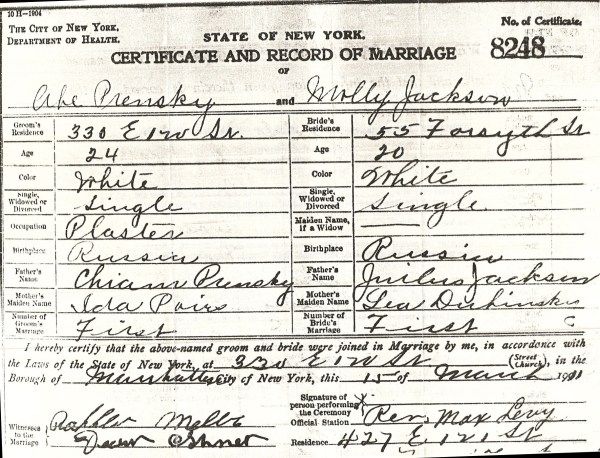 10 H-1904
THE CITY OF NEW YORK. STATE OF NEW YORK. No. of Certificate.
DEPARTMENT OF HEALTH. CERTIFICATE AND RECORD OF MARRIAGE 8248
OF
Abe Prensky and Molly Jackson
Groom's Residence 330 E 120 St. Bride's Residence 55 Forsyth St
Age 24 Age 20
Color White Color White
Single, Widowed or Divorced Single Single, Widowed or Divorced Single
Occupation Plaster Maiden Name, if a Widow
Birthplace Russia Birthplace Russia
Father's Name Chiam Prensky Father's Name Juilus Jackson
Mother's Maiden Name Ida Mother's Maiden Name Lea
Number of Groom's Marriage First Number of Bride's Marriage First
I hereby certify that the above-named groom and bride were joined in Marriage by me, in accordance with
the Laws of the State of New York, at 330 E 120 St (Street Church), in the
Borough of Manhattan City of New York, this 15 of March 1911
Witnesses to the Marriage Signature of person performing the Ceremony Rev. Max Levy
Official Station
Residence 427 E 121 St